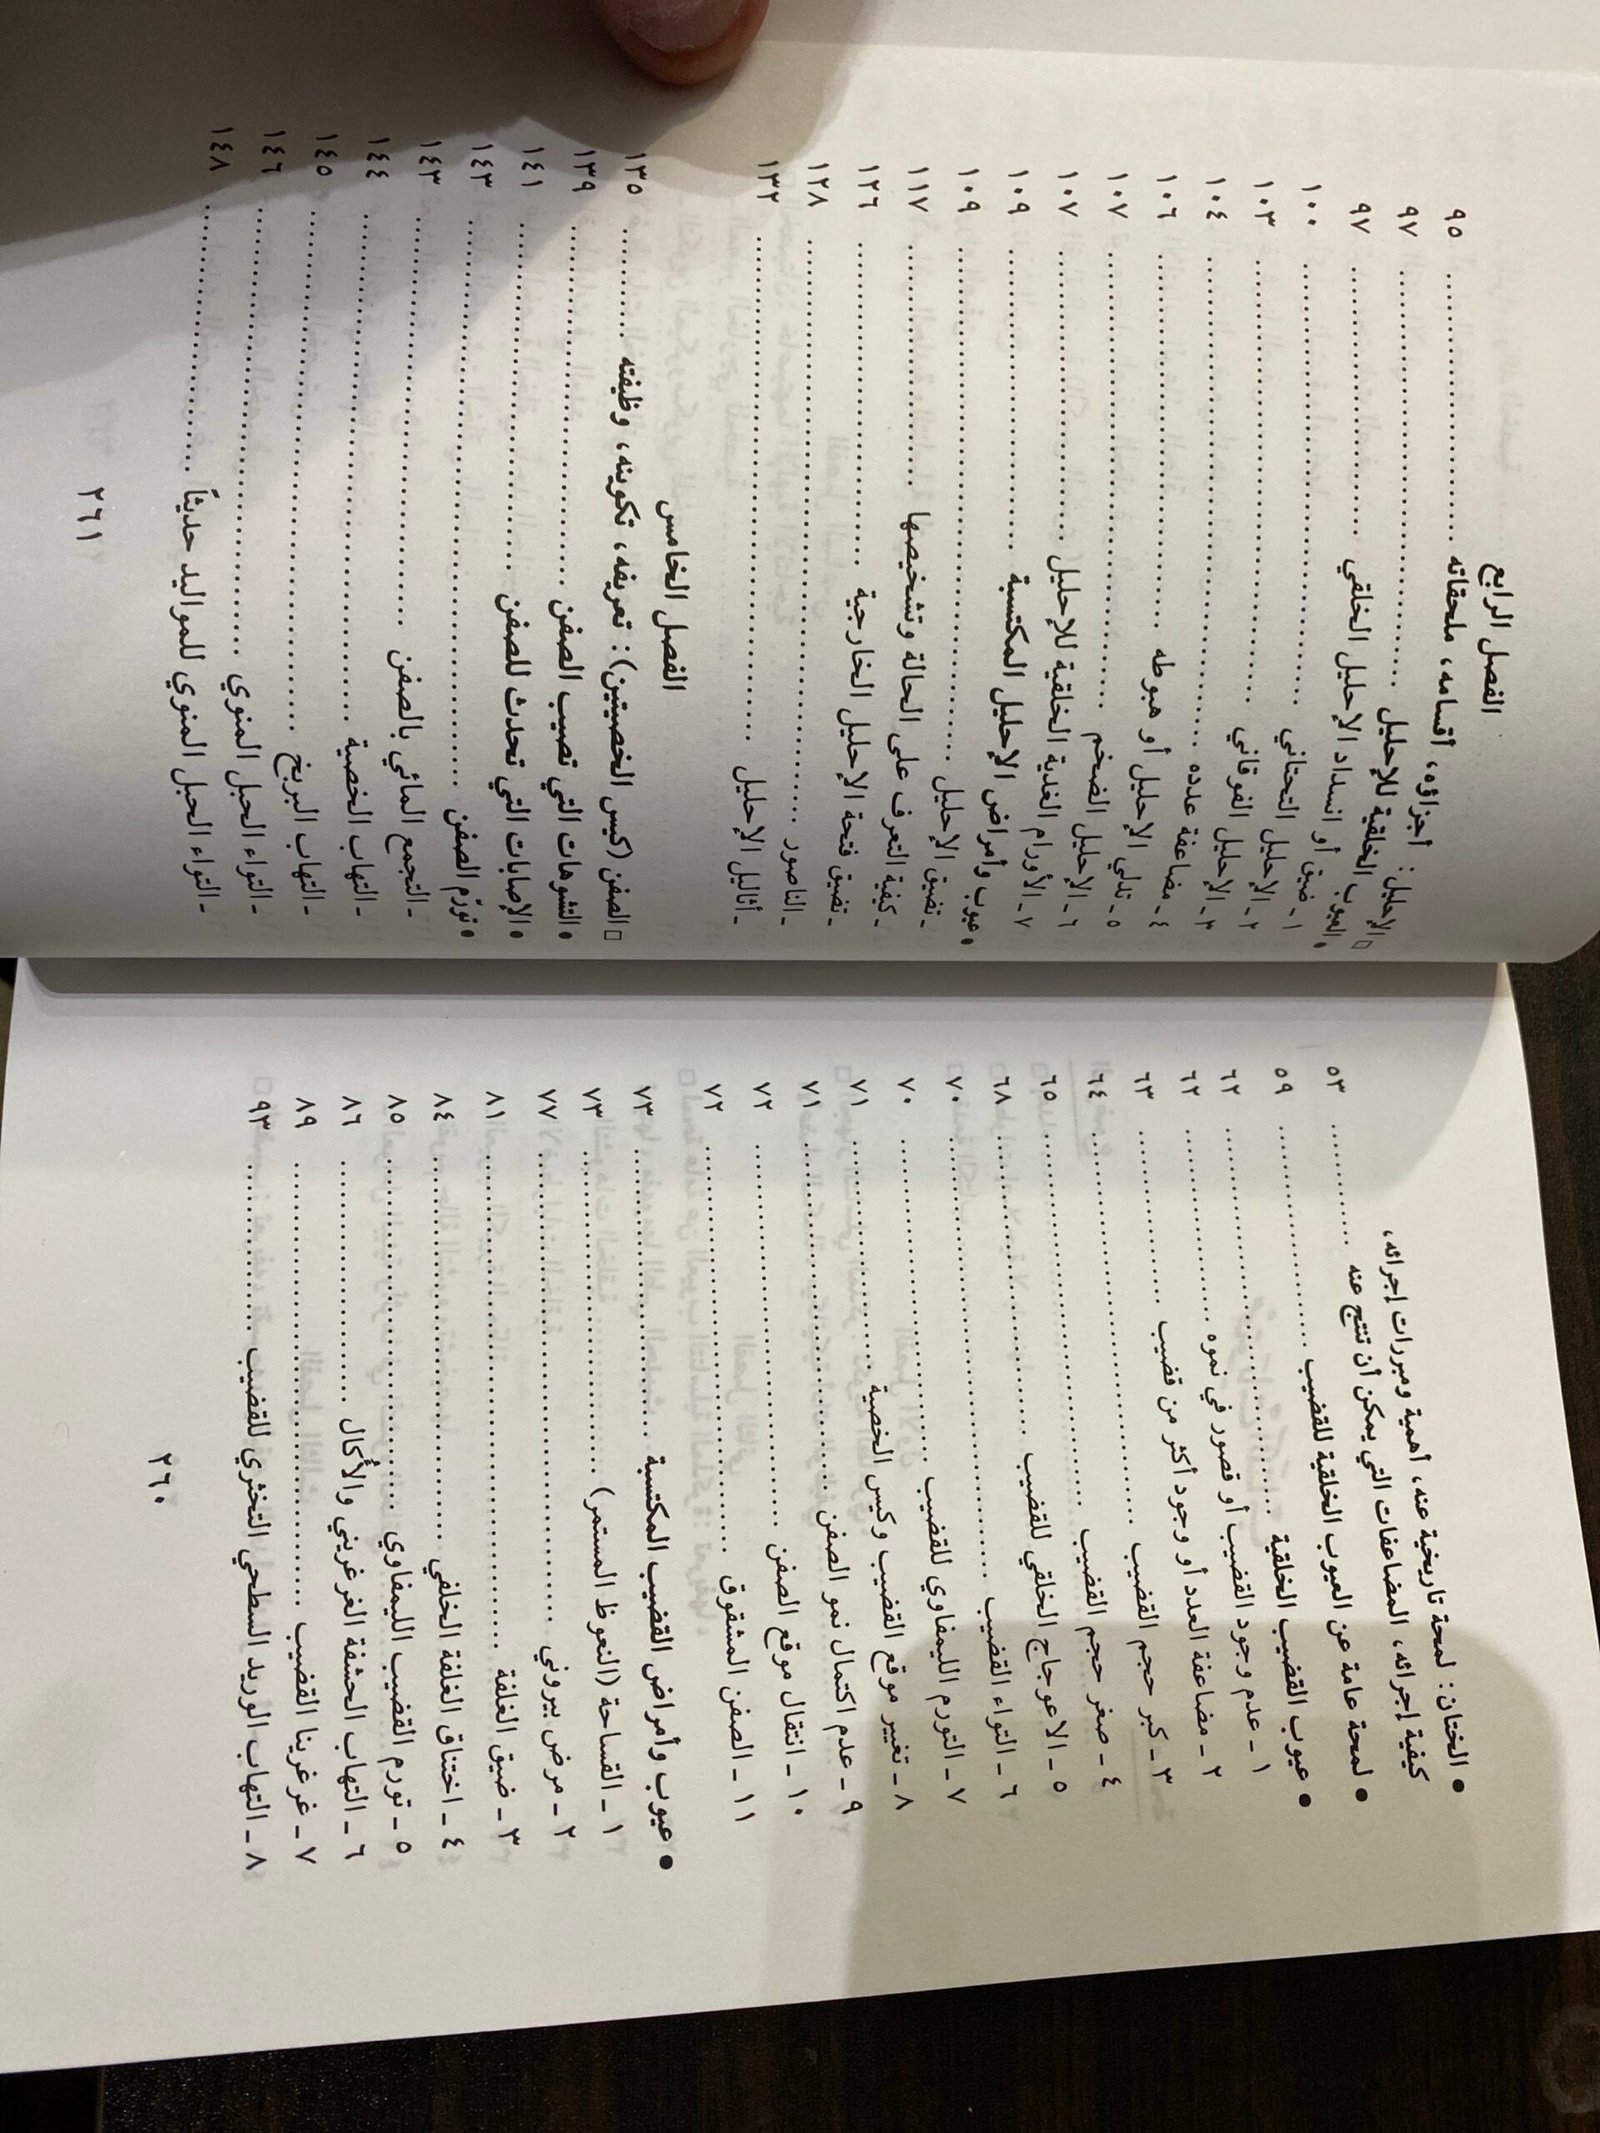 ● الختان: لمحة تاريخية عنه، أهمية ومبررات إجرائه،
كيفية إجرائه، المضاعفات التي يمكن أن تنتج عنه .......... ٥٣
● لمحة عامة عن العيوب الخلقية للقضيب .......... ٥٩
● عيوب القضيب الخلقية .......... ٦٢
١ ـ عدم وجود القضيب أو قصور في نموه .......... ٦٢
٢ ـ مضاعفة العدد أو وجود أكثر من قضيب .......... ٦٣
٣ ـ كبر حجم القضيب .......... ٦٤
٤ ـ صغر حجم القضيب .......... ٦٥
٥ ـ الاعوجاج الخلقي للقضيب .......... ٦٨
٦ ـ التواء القضيب .......... ٧٠
٧ ـ التورم الليمفاوي للقضيب .......... ٧٠
٨ ـ تغيير موقع القضيب وكيس الخصية .......... ٧١
٩ ـ عدم اكتمال نمو الصفن .......... ٧١
١٠ ـ انتقال موقع الصفن .......... ٧٢
١١ ـ الصفن المشقوق .......... ٧٢
● عيوب وأمراض القضيب المكتسبة .......... ٧٣
١ ـ القساحة (النعوظ المستمر) .......... ٧٣
٢ ـ مرض بيروني .......... ٧٧
٣ ـ ضيق الغلفة .......... ٨١
٤ ـ اختناق الغلفة الخلفي .......... ٨٤
٥ ـ تورم القضيب الليمفاوي .......... ٨٥
٦ ـ التهاب الحشفة الغرغريني والأكال .......... ٨٦
٧ ـ غرغرينا القضيب .......... ٨٩
٨ ـ التهاب الوريد السطحي التخثري للقضيب .......... ٩٣
٢٦٠
الفصل الرابع
□ الإحليل: أجزاؤه، أقسامه، ملحقاته .......... ٩٥
● العيوب الخلقية للإحليل .......... ٩٧
١ ـ ضيق أو انسداد الإحليل الخلقي .......... ٩٧
٢ ـ الإحليل التحتاني .......... ١٠٠
٣ ـ الإحليل الفوقاني .......... ١٠٣
٤ ـ مضاعفة عدده .......... ١٠٤
٥ ـ تدلي الإحليل أو هبوطه .......... ١٠٦
٦ ـ الإحليل الضخم .......... ١٠٧
٧ ـ الأورام الغدية الخلقية للإحليل .......... ١٠٧
● عيوب وأمراض الإحليل المكتسبة .......... ١٠٩
ـ تضيق الإحليل .......... ١٠٩
ـ كيفية التعرف على الحالة وتشخيصها .......... ١١٧
ـ تضيق فتحة الإحليل الخارجية .......... ١٢٦
ـ الناصور .......... ١٢٨
ـ أثاليل الإحليل .......... ١٣٢
الفصل الخامس
□ الصفن (كيس الخصيتين): تعريفه، تكوينه، وظيفته .......... ١٣٥
● التشوهات التي تصيب الصفن .......... ١٣٩
● الإصابات التي تحدث للصفن .......... ١٤١
● تورّم الصفن .......... ١٤٣
ـ التجمع المائي بالصفن .......... ١٤٣
ـ التهاب الخصية .......... ١٤٤
ـ التهاب البربخ .......... ١٤٥
ـ التواء الحبل المنوي .......... ١٤٦
ـ التواء الحبل المنوي للمواليد حديثاً .......... ١٤٨
٢٦١